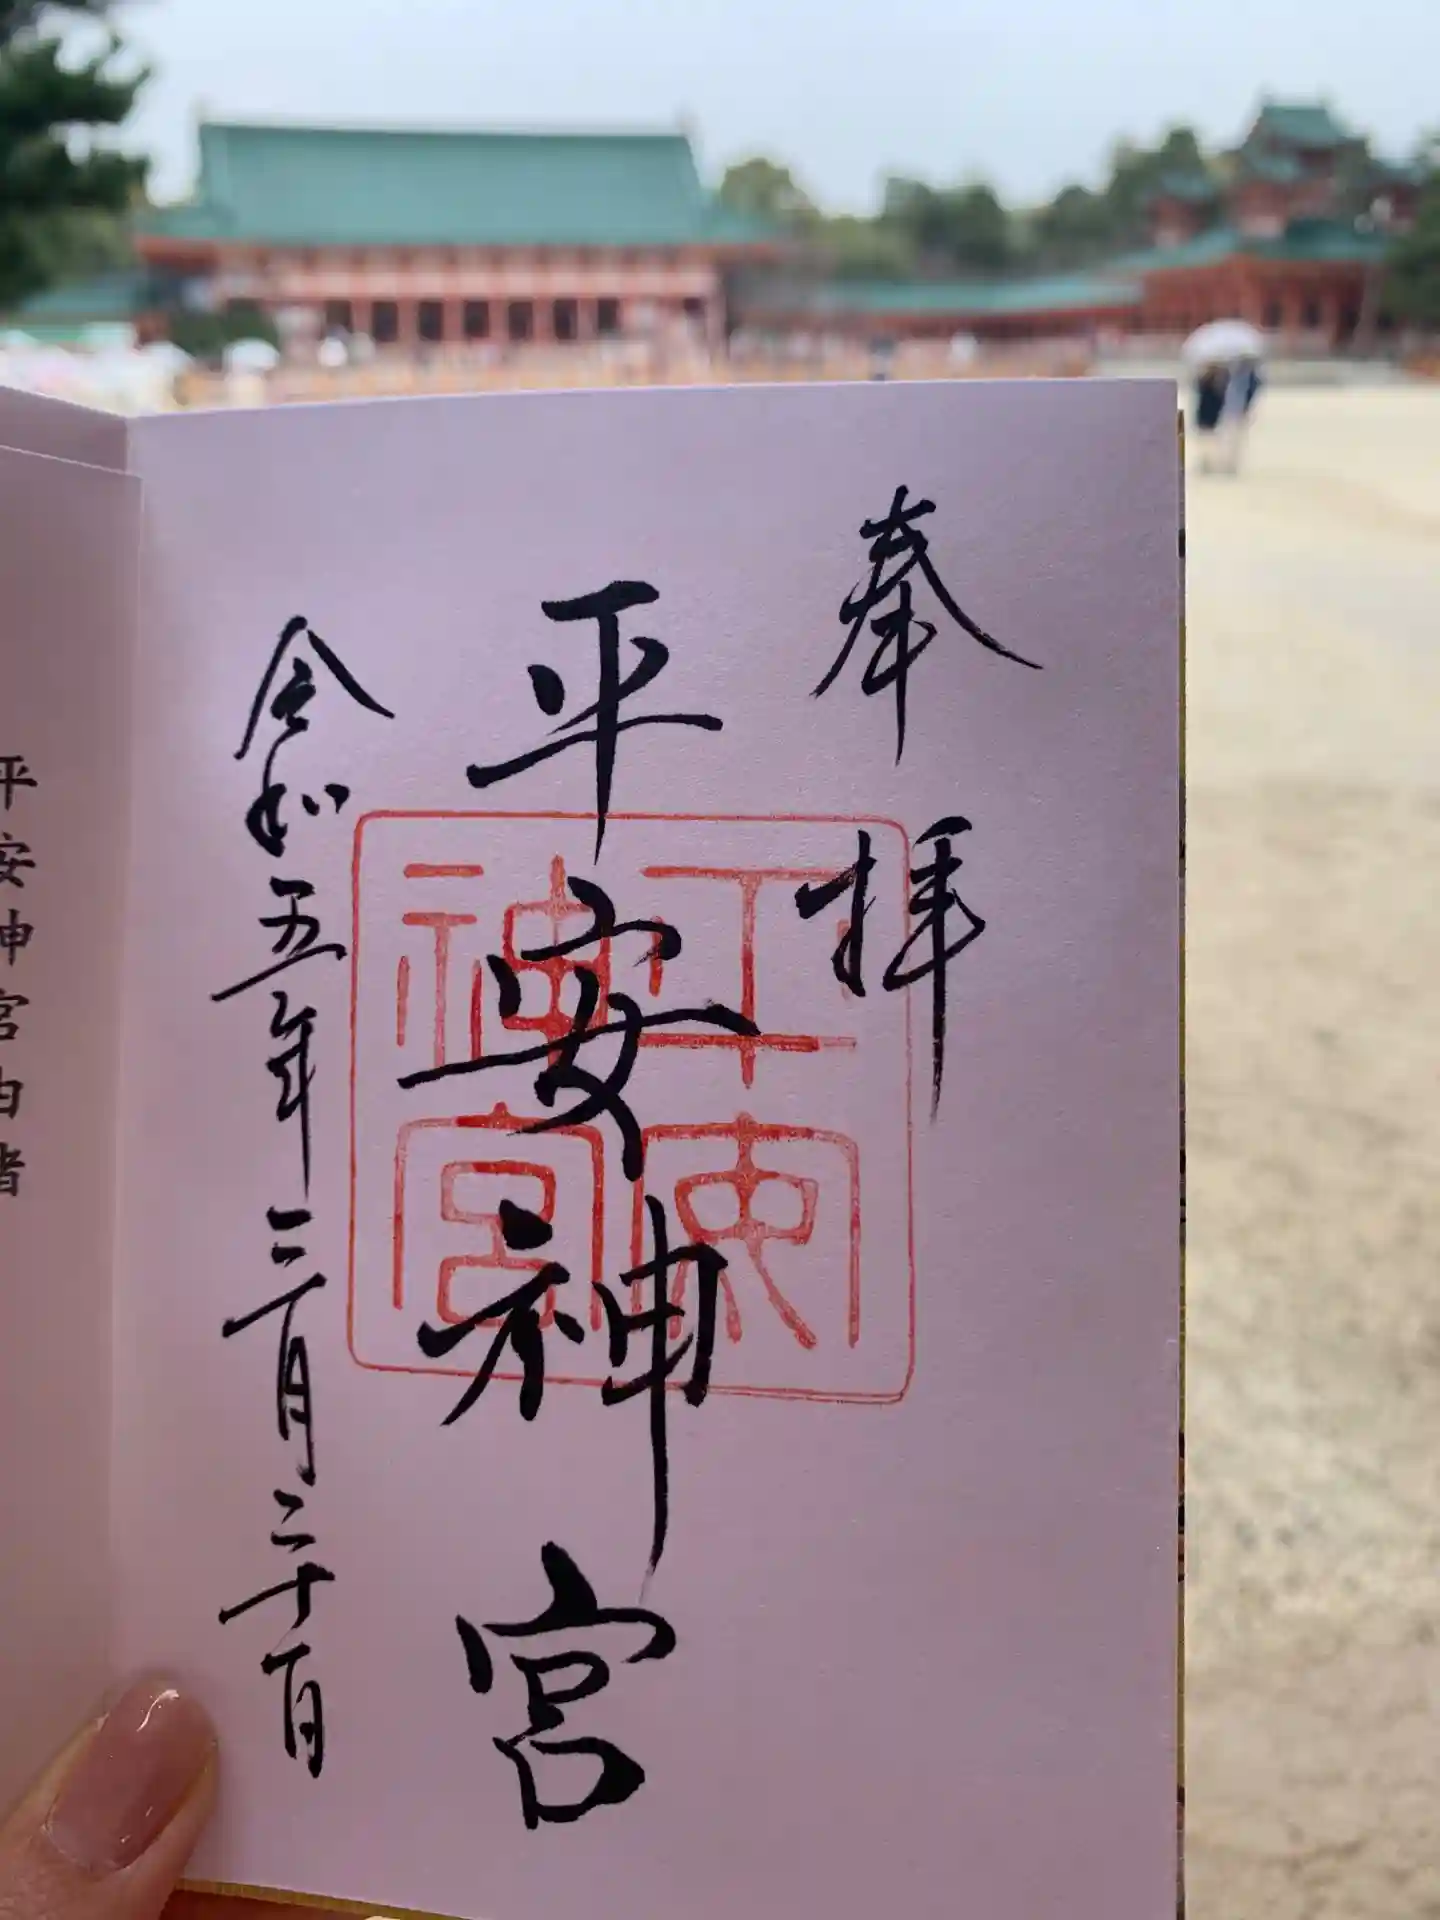 奉拝
平安神宮
令和五年三月二十一日
平安神宮
平安神宮由緒